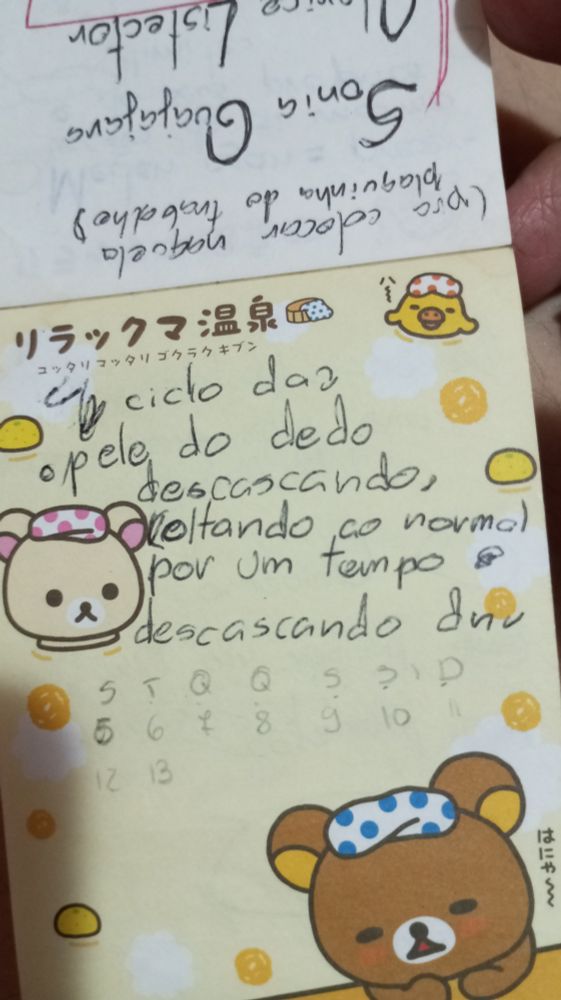 (pra colocar naquela
plaquinha do trabalho?)
Sonia Guajajara
Clarice Lispector
リラックマ温泉
ユッタリ マッタリ ゴクラク キブン
ハ〜
ciclo da
pele do dedo
descascando,
voltando ao normal
por um tempo e
descascando dnv
S T Q Q S S D
5 6 7 8 9 10 11
12 13
はにゃ〜〜